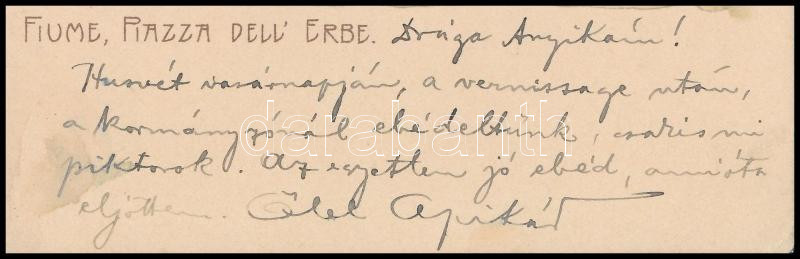 FIUME, PIAZZA DELL' ERBE. Drága Anyikám!
Husvét vasárnapján, a vernissage után,
a kormányzónál ebédeltünk, csakis mi
piktorok. Az egyetlen jó ebéd, amióta
eljöttem. Ölel Apikád
darabanth